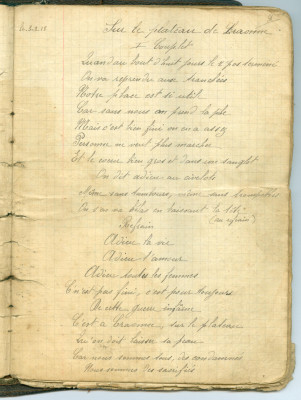 Sur le plateau de Craonne
1 Couplet
Quand au bout d'huit jours le repos terminé
On va reprendre aux tranchées
Notre place est si utile
Car sans nous on prend la pile
Mais c'est bien fini on en a assez
Personne ne veut plus marcher
Et le cœur bien gros et dans un sanglot
On dit adieu aux civelots
Même sans tambours, même sans trompettes
On s'en va en baissant la tête
(au refrain)
Refrain
Adieu la vie
Adieu l'amour
Adieu toutes les femmes
C'est pas fini, c'est pour toujours
De cette guerre infâme
C'est à Craonne, sur le plateau
Qu'on doit laisser sa peau
Car nous sommes tous des condamnés
Nous sommes des sacrifiés